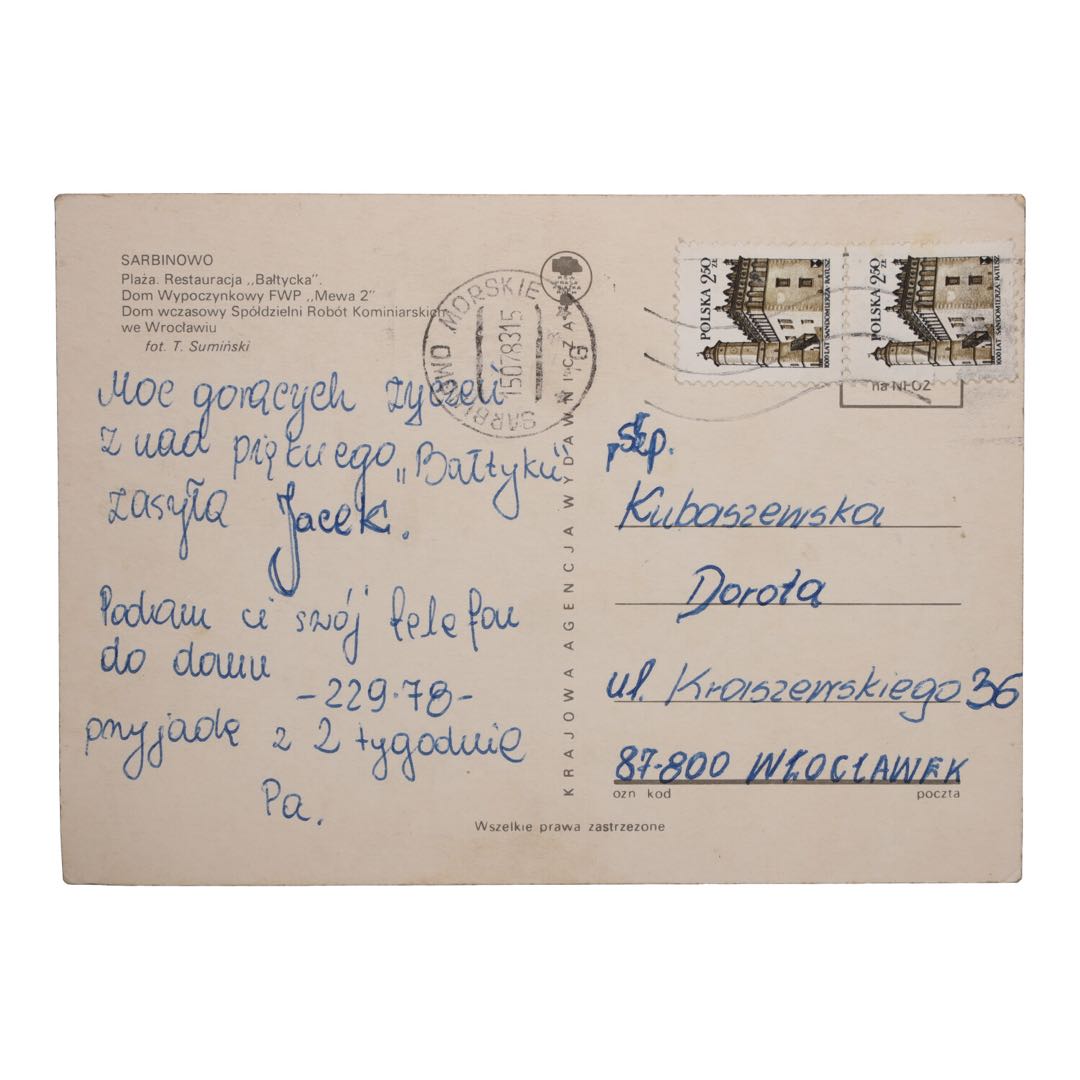 SARBINOWO
Plaża. Restauracja „Bałtycka".
Dom Wypoczynkowy FWP „Mewa 2"
Dom wczasowy Spółdzielni Robót Kominiarskich
we Wrocławiu
fot. T. Sumiński
Moc gorących życzeń
z nad pięknego „Bałtyku"
zasyła Jacek.
Podam ci swój telefon
do domu
-229-78-
przyjadę z 2 tygodnie
Pa.
SARBINOWO MORSKIE
15078315
KRAJOWA AGENCJA WYDAWNICZA
POLSKA 2.50 ZŁ
1000 LAT SANDOMIERZA·RATUSZ
POLSKA 2.50 ZŁ
1000 LAT SANDOMIERZA·RATUSZ
na NFOZ
Kubaszewska
Dorota
ul. Kraszewskiego 36
87-800 WŁOCŁAWEK
ozn kod poczta
Wszelkie prawa zastrzeżone